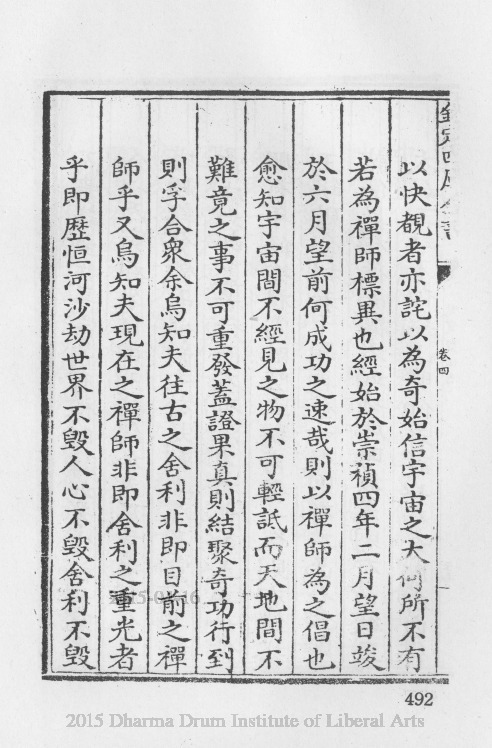 欽定四庫全書
卷四
以快覩者亦詫以為奇始信宇宙之大何所不有
若為禪師標異也經始於崇禎四年二月望日竣
於六月望前何成功之速哉則以禪師為之倡也
愈知宇宙間不經見之物不可輕詆而天地間不
難竟之事不可重發蓋證果真則結聚奇功行到
則孚合衆余烏知夫往古之舍利非即目前之禪
師乎又烏知夫現在之禪師非即舍利之重光者
乎即歴恒河沙劫世界不毀人心不毀舍利不毀
492
2015 Dharma Drum Institute of Liberal Arts